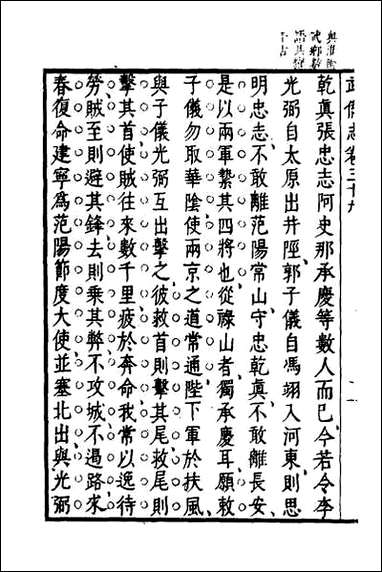 與淮陰
武備志卷三十九
乾真張忠志阿史那承慶等數人而已今若令李
光弼自太原出井陘郭子儀自馮翊入河東則思
明忠志不敢離范陽常山守忠乾真不敢離長安
是以兩軍縶其四將也從祿山者獨承慶耳願敕
子儀勿取華陰使兩京之道常通陛下軍於扶風
與子儀光弼互出擊之彼救首則擊其尾救尾則
擊其首使賊往來數千里疲於奔命我常以逸待
勞賊至則避其鋒去則乘其弊不攻城不遏路來
春復命建寧爲范陽節度大使並塞北出與光弼